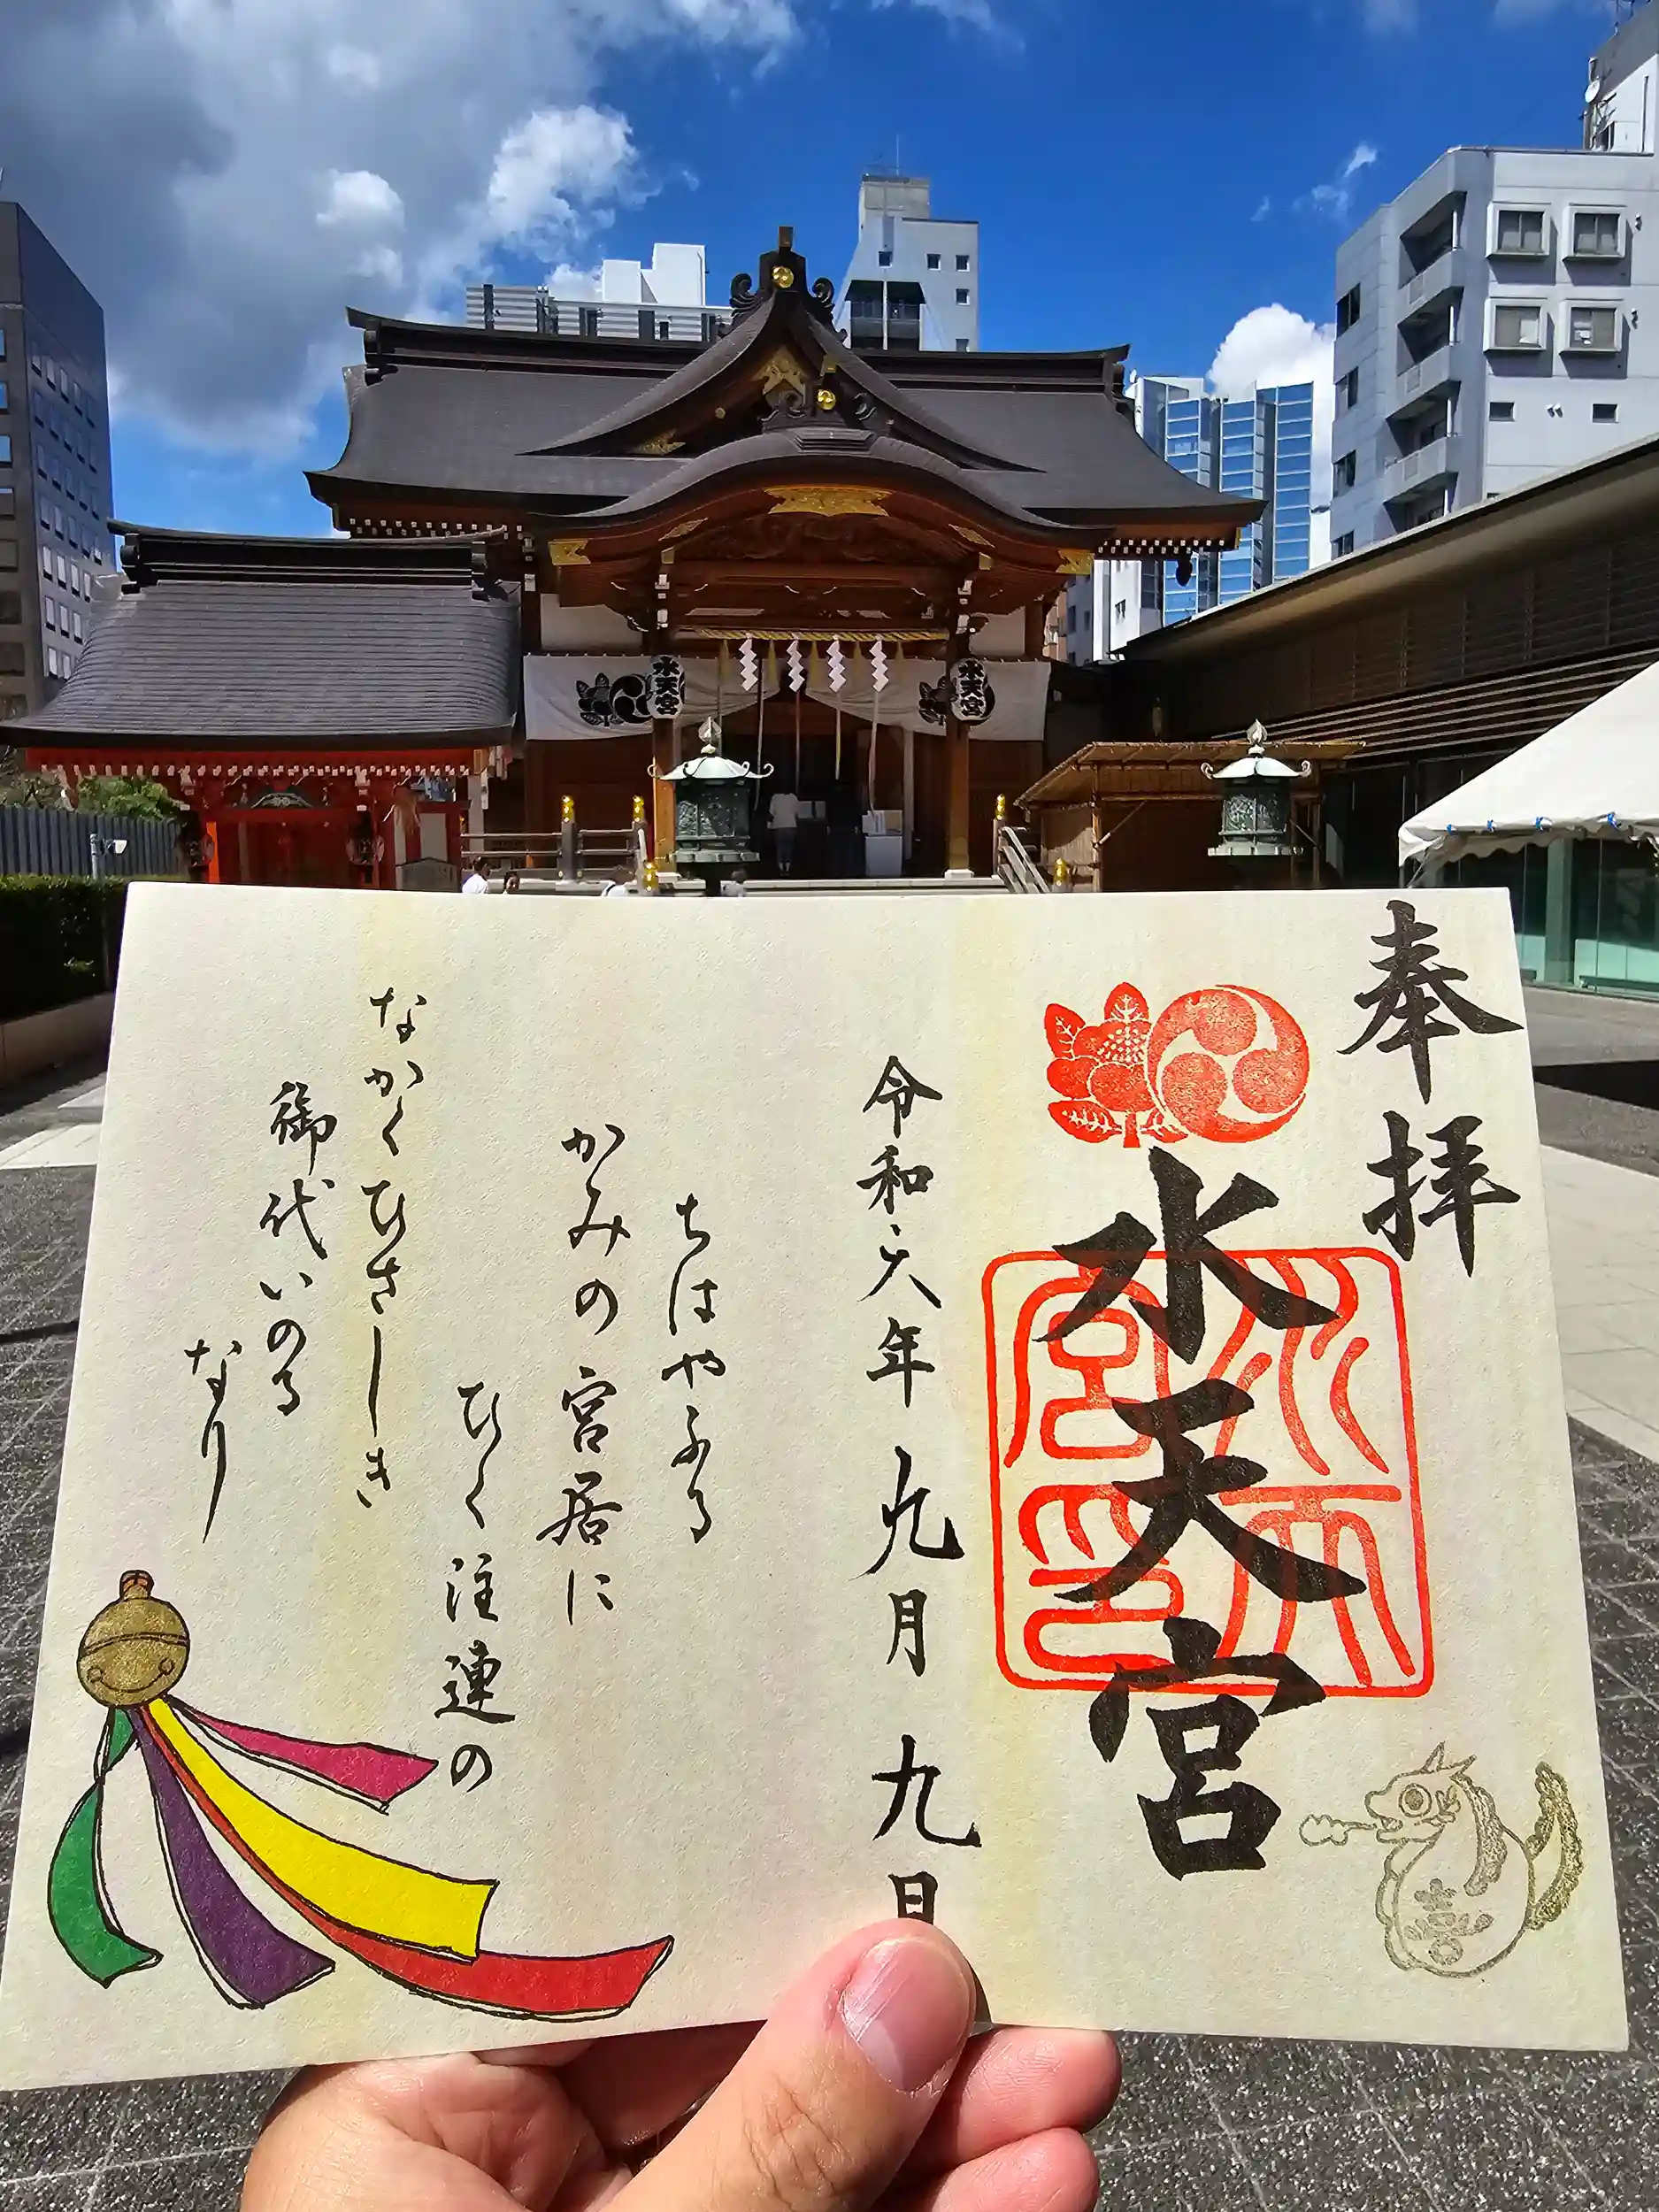 水天宮
水天宮
奉拝
水天宮
水天宮印
令和六年九月九日
ちはやふる
かみの宮居に
ひく注連の
なかくひさしき
御代いのる
なり
喜